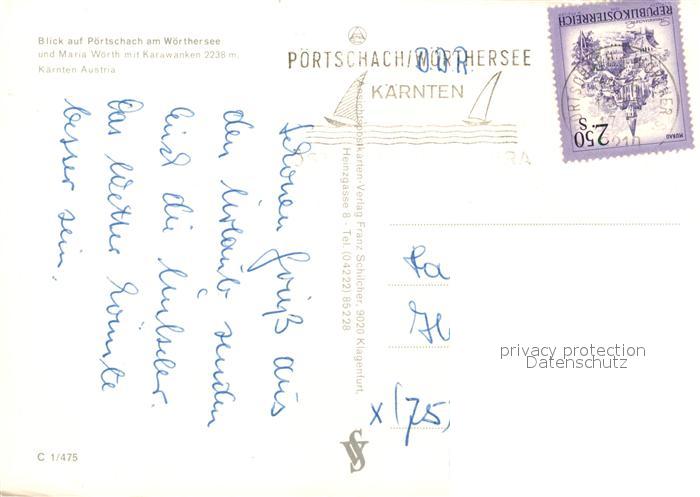 Blick auf Pörtschach am Wörthersee
und Maria Wörth mit Karawanken 2238 m,
Kärnten Austria
PÖRTSCHACH/WÖRTHERSEE
KÄRNTEN
DDR
REPUBLIK ÖSTERREICH
MURAU
S 2.50
schönen Gruß aus
den Urlaub senden
das Wetter könnte
besser sein.
Ansichtspostkarten-Verlag Franz Schilcher, 9020 Klagenfurt,
Heinzgasse 8 - Tel. (04222) 85228
x/75,
privacy protection
Datenschutz
C 1/475